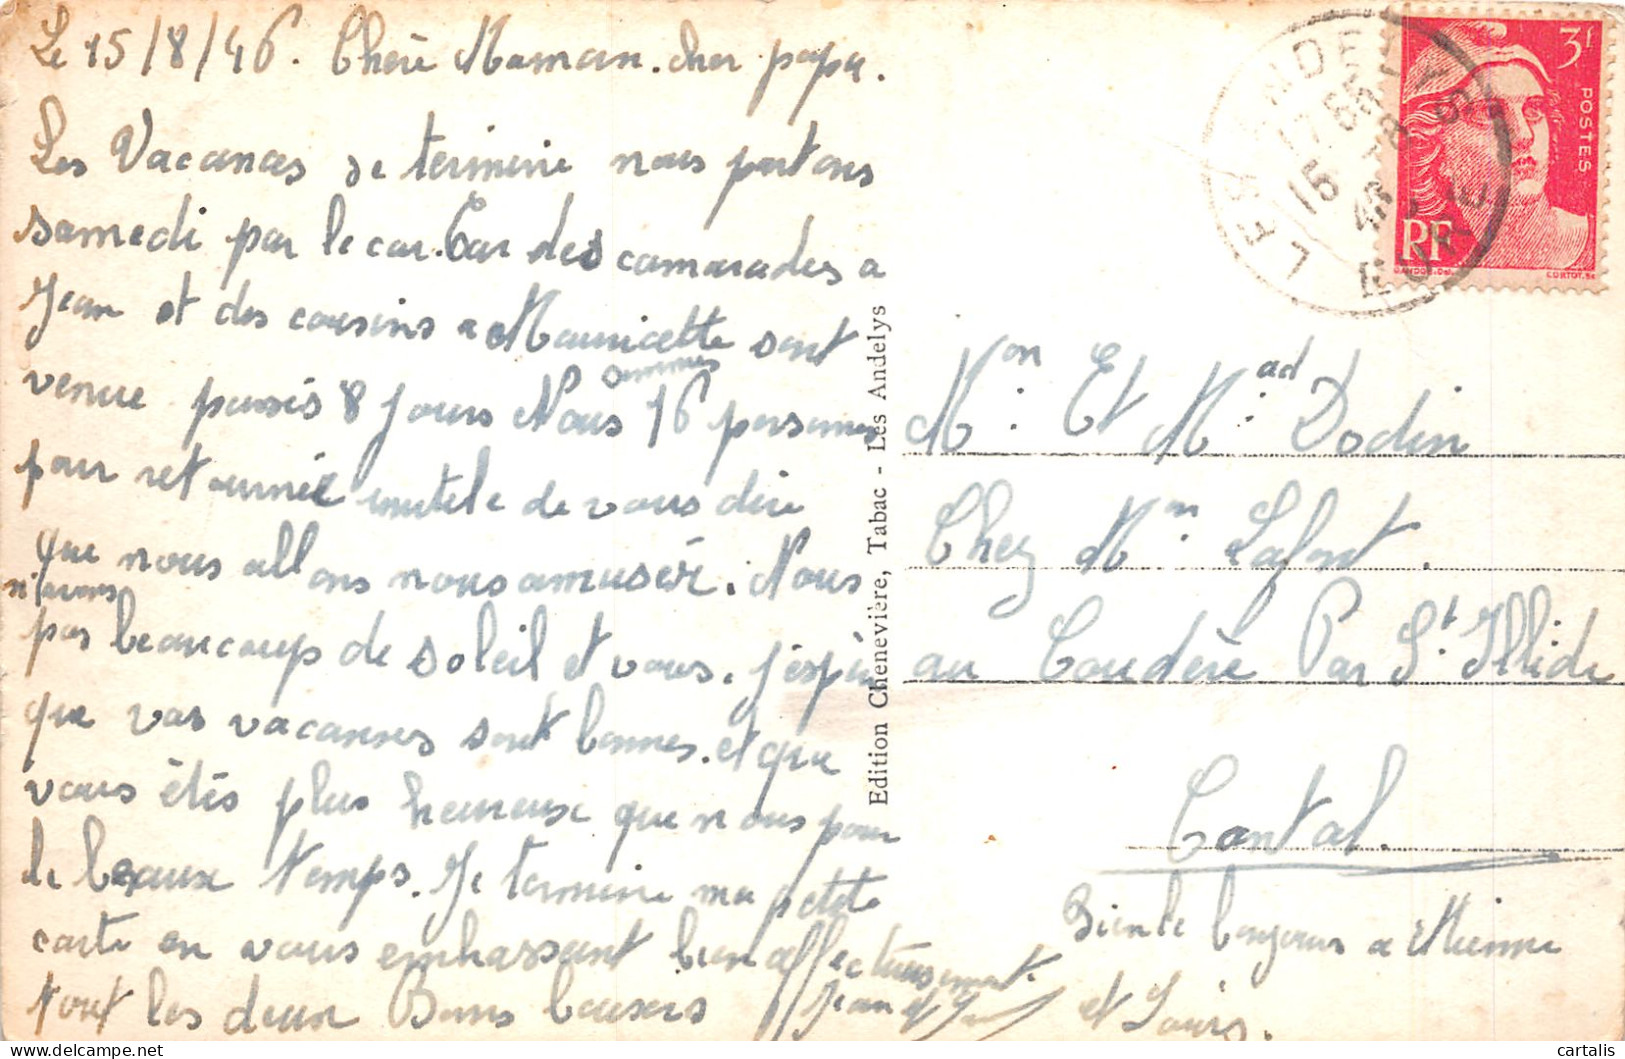 Le 15/8/46. Chère Maman. cher papa.
Les Vacances se termine nous partons
samedi par le car. Car des camarades a
Jean et des cousins a Mauricette sont
venue passés 8 jours Nous sommes 16 personnes
pour retournée inutile de vous dire
que nous allons nous amusér. Nous
n'avons
pas beaucoup de soleil et vous. j'espère
que vos vacances sont bonnes. et que
vous étés plus heureuse que nous pour
le beaux temps. Je termine ma petite
carte en vous embrassant bien affectueusement.
tout les deux Bons baisers
Jean et
Edition Chenevière, Tabac - Les Andelys
LES ANDELYS
17 55
15 - 8
46
EURE
3f
POSTES
RF
GANDON. Del.
CORTOT. Sc
Mon: Et Mad: Dodin
Chez Mm: Lafont.
au Coudère Par St. Illide
Cantal.
Bien le bonjour a Mienne
et Louis.
cartalis